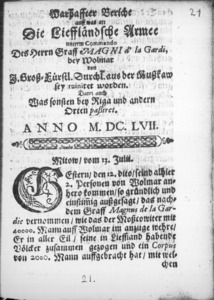 21
Warhaffter Bericht
was an
Die Liefländsche Armee
unterm Commando
Des Herrn Graff MAGNI d' la Gardi,
bey Wolmar
von
J. Groß-Fürstl. Durchl. aus der Mußkaw
sey ruinirt worden.
Darn auch
Was sonsten bey Riga und andern
Orten passiret.
ANNO M. DC. LVII.
Mitow / vom 13. Julii.
GEstern / den 12. dito / seind alhier
2. Personen von Wolmar an-
hero kommen / so gründlich und
einstimmig außgesagt / das nach-
dem Graff Magnus de la Gar-
die vernommen / wie das der Moscowiter mit
40000. Mann auff Wolmar im anzuge wehre /
Er in aller Eil / seine in Lieffland habende
Völcker zusamen gezogen und ein Corpus
von 2000. Mann auffgebracht hat / mit wel-
chen
21.